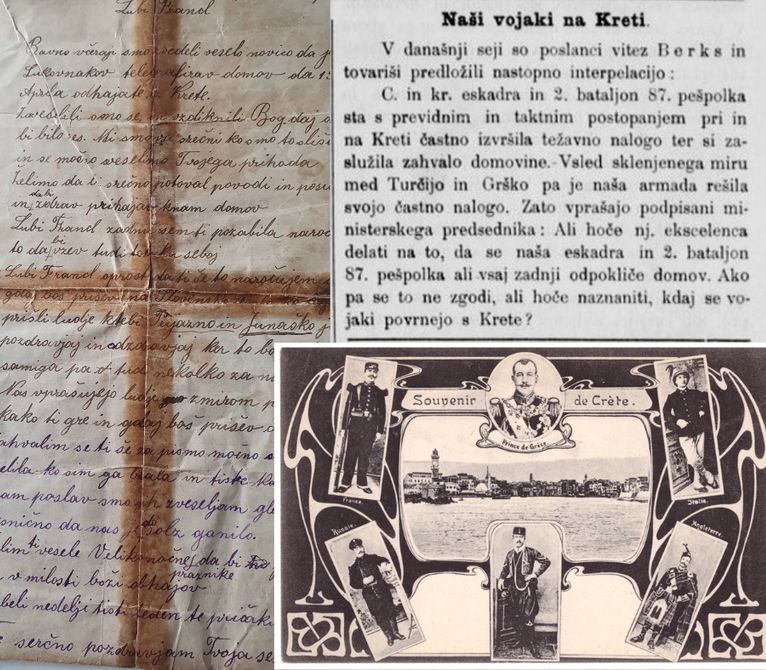 Lubi Franol
Ravno včeraj smo zvedeli veselo novico da j
telegrafirav domov da 13
Aprila odhajate iz Krete.
Zaveselili smo se in vzdiknili Bog daj
bi bilo res. Mi smo srečni ko smo to sliš
in se močno veselimo Tvojega prihoda
Želimo da bi srečno potoval povodi in po
in da zdrav prihajav knam domov
Lubi Franol zadni sem ti pozabila naroč
to da bi vzev tudi seboj
Lubi Franol oprosti da ti še to naročujem
gdaj boš prišev na Slovensko
prišli ludje k tebi Prijazno in Junaško
pozdravjaj in odzdravjaj ker to bo
samiga pa tud nekolko za n
Nas vprašujejo ludje zmirom
kako ti gre in gdaj boš prišev
ahvalim se ti še za pismo močno
elila ko sim ga brala in tiste
am poslav smo jih zveseljam gle
da nas je do solz ganilo.
lim ti vesele Velikonočne da bi
praznike
v milosti boži obhajov
beli nedelji tisti teden te priča
serčno pozdravjam Tvoja se
Naši vojaki na Kreti.
V današnji seji so poslanci vitez Berks in
tovariši predložili nastopno interpelacijo :
C. in kr. eskadra in 2. bataljon 87. pešpolka
sta s previdnim in taktnim postopanjem pri in
na Kreti častno izvršila težavno nalogo ter si za-
služila zahvalo domovine. Vsled sklenjenega miru
med Turčijo in Grško pa je naša armada rešila
svojo častno nalogo. Zato vprašajo podpisani mi-
nisterskega predsednika : Ali hoče nj. ekscelenca
delati na to, da se naša eskadra in 2. bataljon
87. pešpolka ali vsaj zadnji odpokliče domov. Ako
pa se to ne zgodi, ali hoče naznaniti, kdaj se vo-
jaki povrnejo s Krete ?
Souvenir de Crète.
Prince de Grèce
France.
Italie.
Russie.
Angleterre.